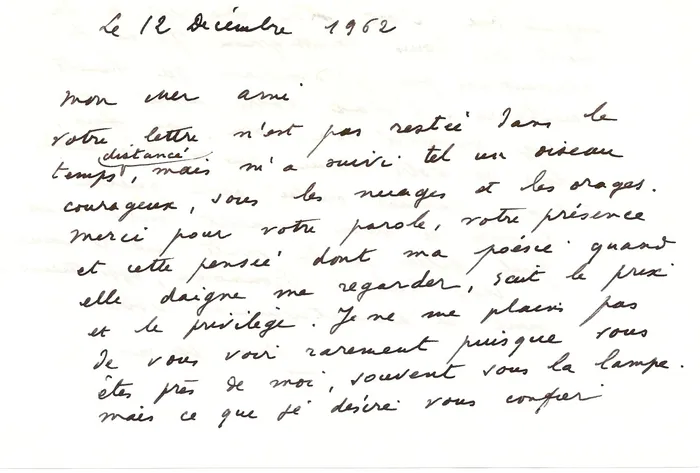 Le 12 Décembre 1962
Mon cher ami
Votre lettre n'est pas restée dans le
distancé
temps, mais m'a suivi tel un oiseau
courageux, sous les nuages et les orages.
Merci pour votre parole, votre présence
et cette pensée dont ma poésie quand
elle daigne me regarder, sait le prix
et le privilège. Je ne me plains pas
de vous voir rarement puisque vous
êtes près de moi, souvent sous la lampe.
Mais ce que je désire vous confier